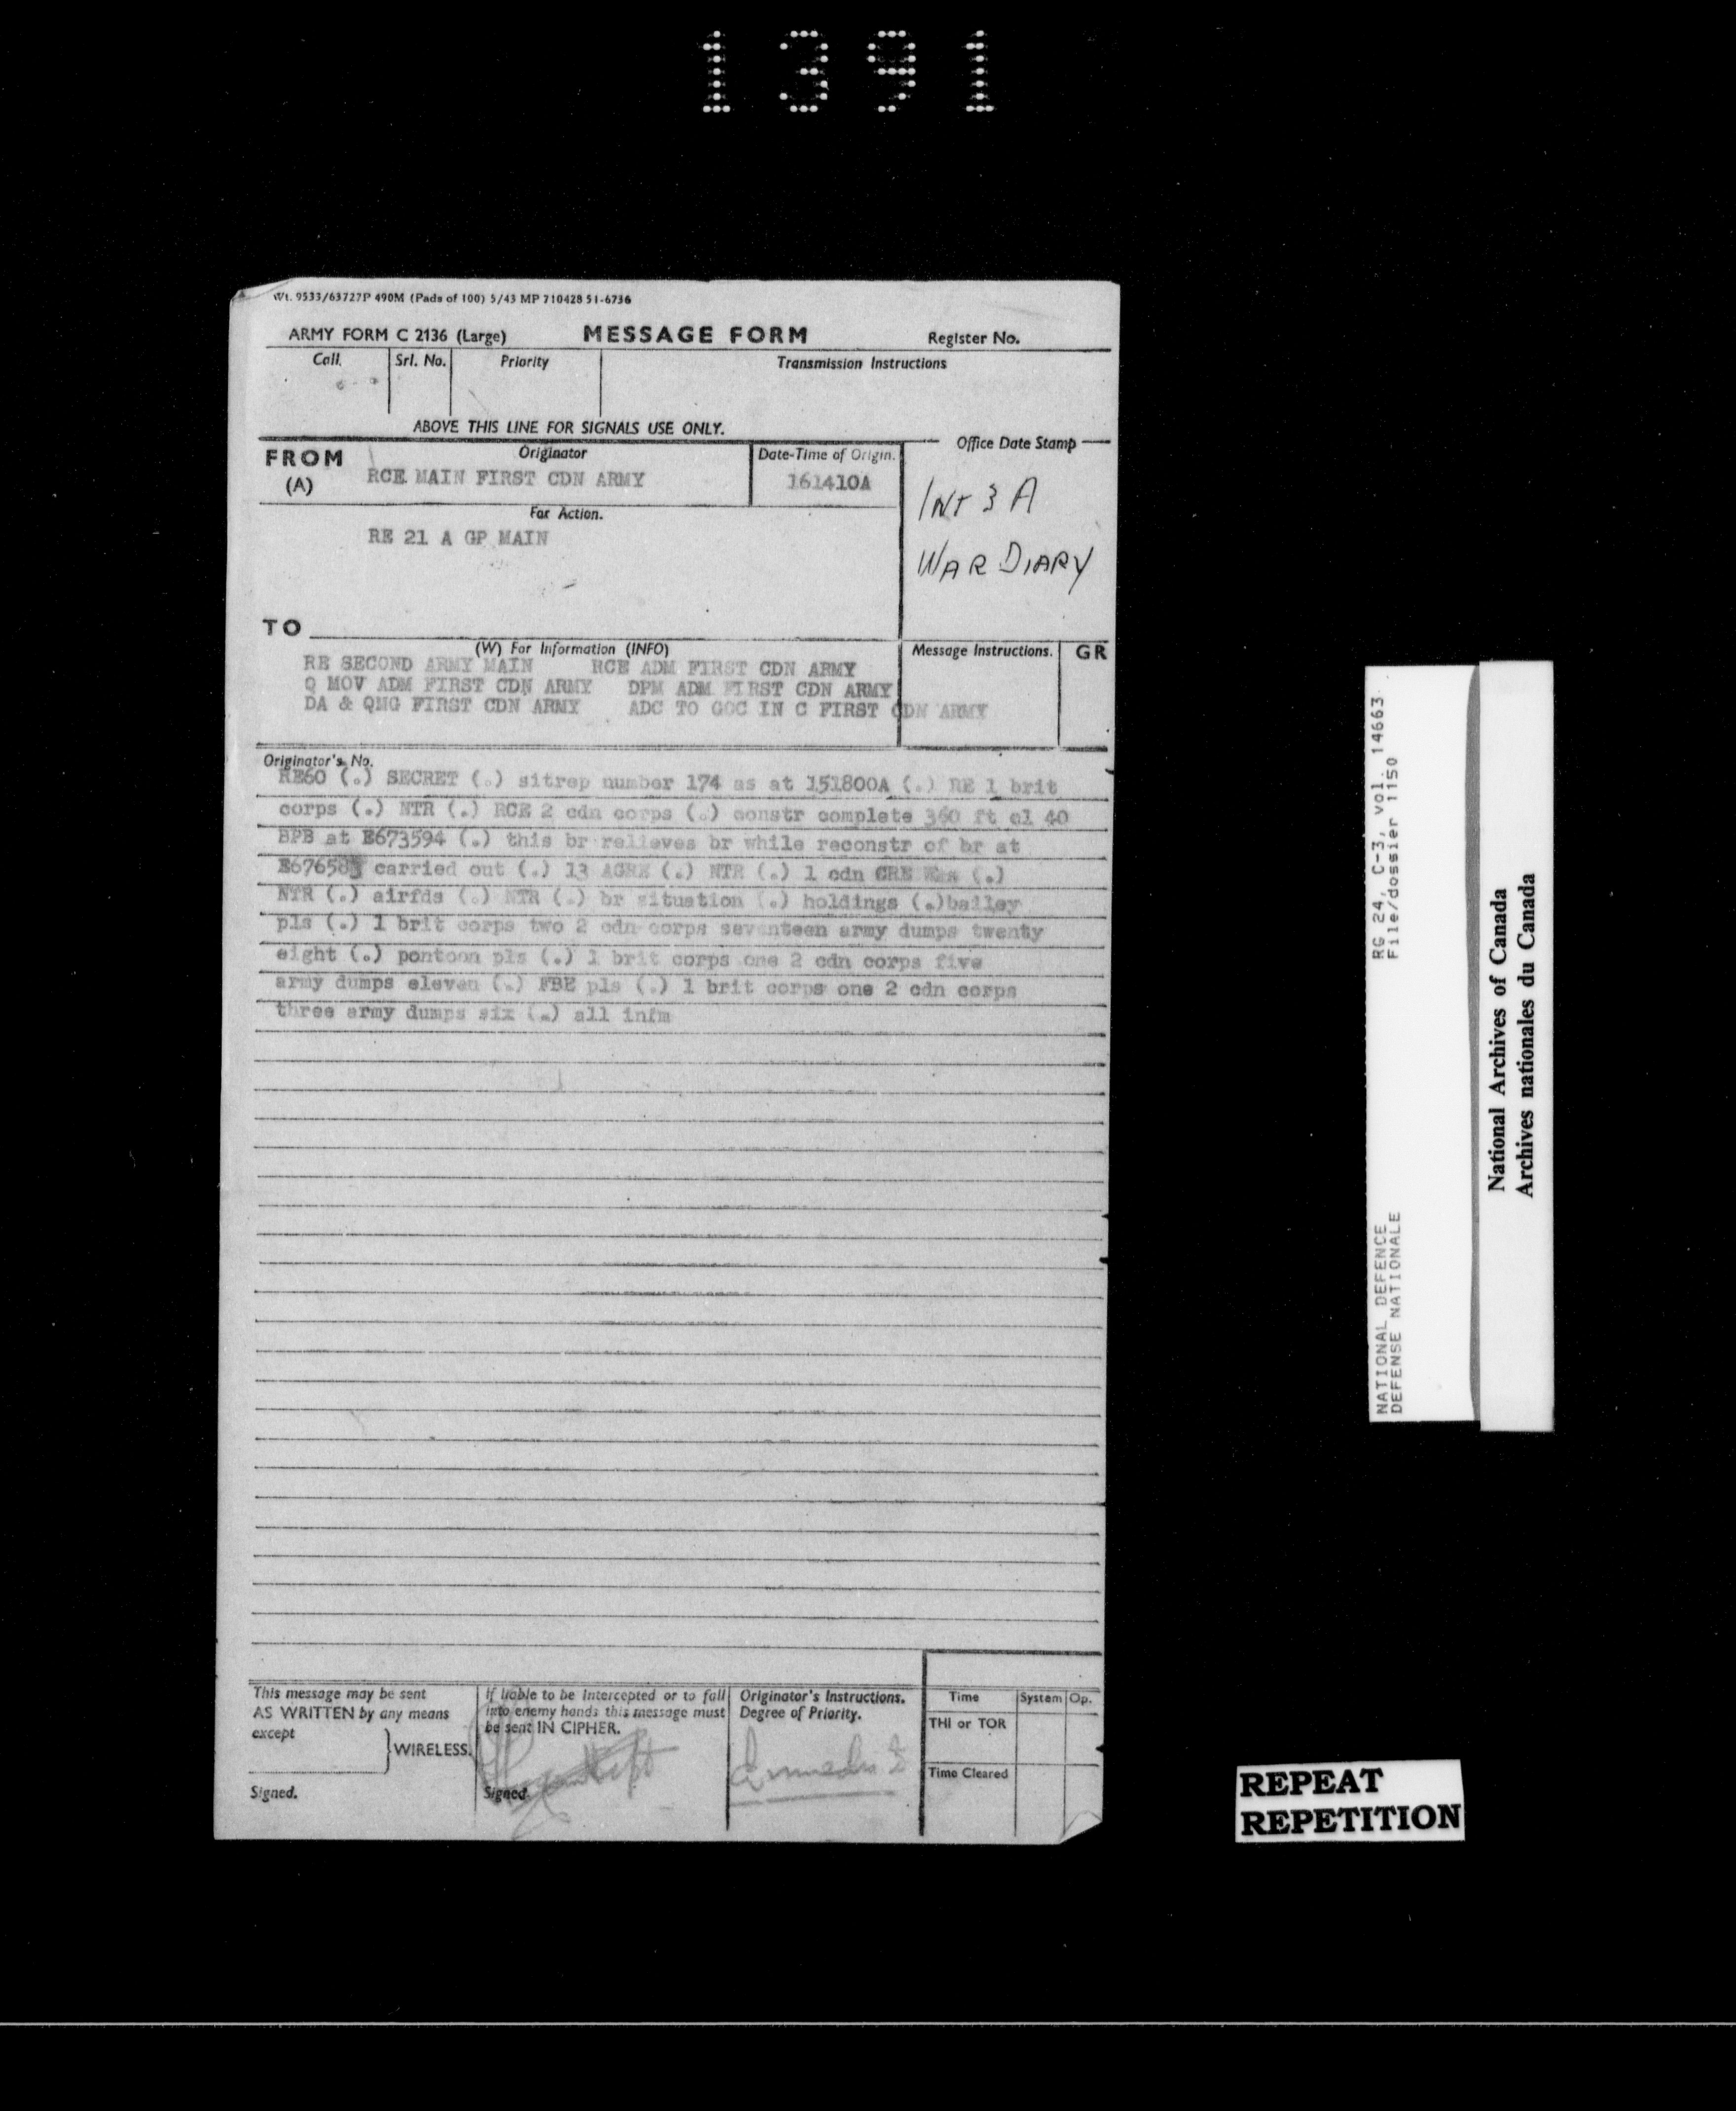 1391
Wt. 9533/63727P 490M (Pads of 100) 5/43 MP 710428 51-6736
ARMY FORM C 2136 (Large) MESSAGE FORM Register No.
Call. Srl. No. Priority Transmission Instructions
ABOVE THIS LINE FOR SIGNALS USE ONLY.
FROM (A) Originator Date-Time of Origin. Office Date Stamp
RCE MAIN FIRST CDN ARMY 161410A
INT 3 A
WAR DIARY
For Action.
RE 21 A GP MAIN
TO
(W) For Information (INFO) Message Instructions. GR
RE SECOND ARMY MAIN RCE ADM FIRST CDN ARMY
Q MOV ADM FIRST CDN ARMY DPM ADM FIRST CDN ARMY
DA & QMG FIRST CDN ARMY ADC TO GOC IN C FIRST CDN ARMY
Originator's No.
RE60 (.) SECRET (.) sitrep number 174 as at 151800A (.) RE 1 brit
corps (.) NTR (.) RCE 2 cdn corps (.) constr complete 360 ft cl 40
BPB at E673594 (.) this br relieves br while reconstr of br at
carried out (.) 13 AGRE (.) NTR (.) 1 cdn CRE (.)
NTR (.) airfds (.) NTR (.) br situation (.) holdings (.)bailey
pls (.) 1 brit corps two 2 cdn corps seventeen army dumps twenty
eight (.) pontoon pls (.) 1 brit corps one 2 cdn corps five
army dumps eleven (.) FBE pls (.) 1 brit corps one 2 cdn corps
three army dumps six (.) all infm
This message may be sent
AS WRITTEN by any means
except
WIRELESS.
Signed.
If liable to be intercepted or to fall
into enemy hands this message must
be sent IN CIPHER.
Signed.
Originator's Instructions.
Degree of Priority.
Time System Op.
THI or TOR
Time Cleared
RG 24, C-3, vol. 14663
File/dossier 1150
NATIONAL DEFENCE
DEFENSE NATIONALE
National Archives of Canada
Archives nationales du Canada
REPEAT
REPETITION